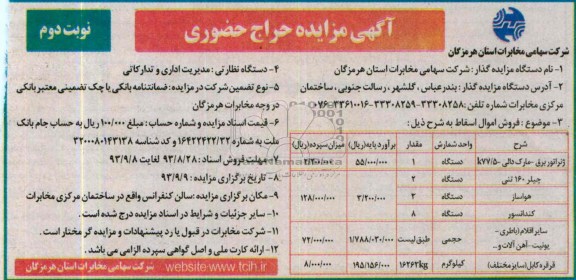 آگهی مزایده حراج حضوری
نوبت دوم
شرکت سهامی مخابرات استان هرمزگان
۱- نام دستگاه مزایده گذار : شرکت سهامی مخابرات استان هرمزگان
۲- آدرس دستگاه مزایده گذار : بندرعباس ، گلشهر ، رسالت جنوبی ، ساختمان
مرکزی مخابرات شماره تلفن: ۳۳۳۰۸۲۵۸-۳۳۳۰۸۲۵۹-۳۳۳۶۱۰۱۶-۰۷۶
۳- موضوع : فروش اموال اسقاط به شرح ذیل :
شرح واحد شمارش مقدار برآورد پایه(ریال) میزان سپرده(ریال)
ژنراتور برق -مارک دالی -k۷۷/۵ دستگاه ۱ ۵۵/۰۰۰/۰۰۰
چیلر ۱۶۰ تنی دستگاه ۲
هواساز دستگاه ۳ ۳/۲۰۰/۰۰۰ ۱۲۸/۰۰۰/۰۰۰
کندانسور دستگاه ۸
سایر اقلام (باطری- یونیت -آهن آلات و- حجمی طبق لیست ۱/۷۸۸/۰۲۰/۰۰۰ ۷۲/۰۰۰/۰۰۰
قرقره کابل(سایز مختلف) کیلوگرم ۱۶۲۶۳kg ۱۹۵/۱۵۶/۰۰۰ ۸/۰۰۰/۰۰۰
۴- دستگاه نظارتی : مدیریت اداری و تدارکاتی
۵- نوع تضمین شرکت در مزایده : ضمانتنامه بانکی یا چک تضمینی معتبر بانکی
در وجه مخابرات هرمزگان
۶- قیمت اسناد مزایده و شماره حساب : مبلغ ۱۰۰/۰۰۰ ریال به حساب جام بانک
ملت به شماره ۱۶۴۲۲۴۲۲/۳۲ و کد شناسه ۳۲۰۰۰۸۰۱۴۳۱۳۸
۷- مهلت فروش اسناد : ۹۳/۸/۲۸ لغایت ۹۳/۹/۸
۸- تاریخ برگزاری مزایده : ۹۳/۹/۹
۹- مکان برگزاری مزایده :سالن کنفرانس واقع در ساختمان مرکزی مخابرات
۱۰- سایر جزئیات و شرایط در اسناد مزایده درج شده است .
۱۱- شرکت مخابرات در قبول یا رد پیشنهادات و مزایده گر مختار است .
۱۲- ارائه کارت ملی و اصل گواهی سپرده الزامی می باشد .
website:www.tcih.ir شرکت سهامی مخابرات استان هرمزگان